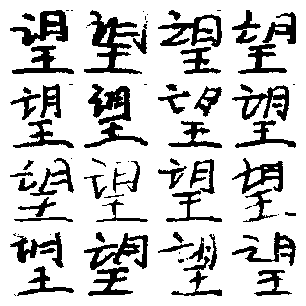 望望望望
望望望望
望望望望
望望望望